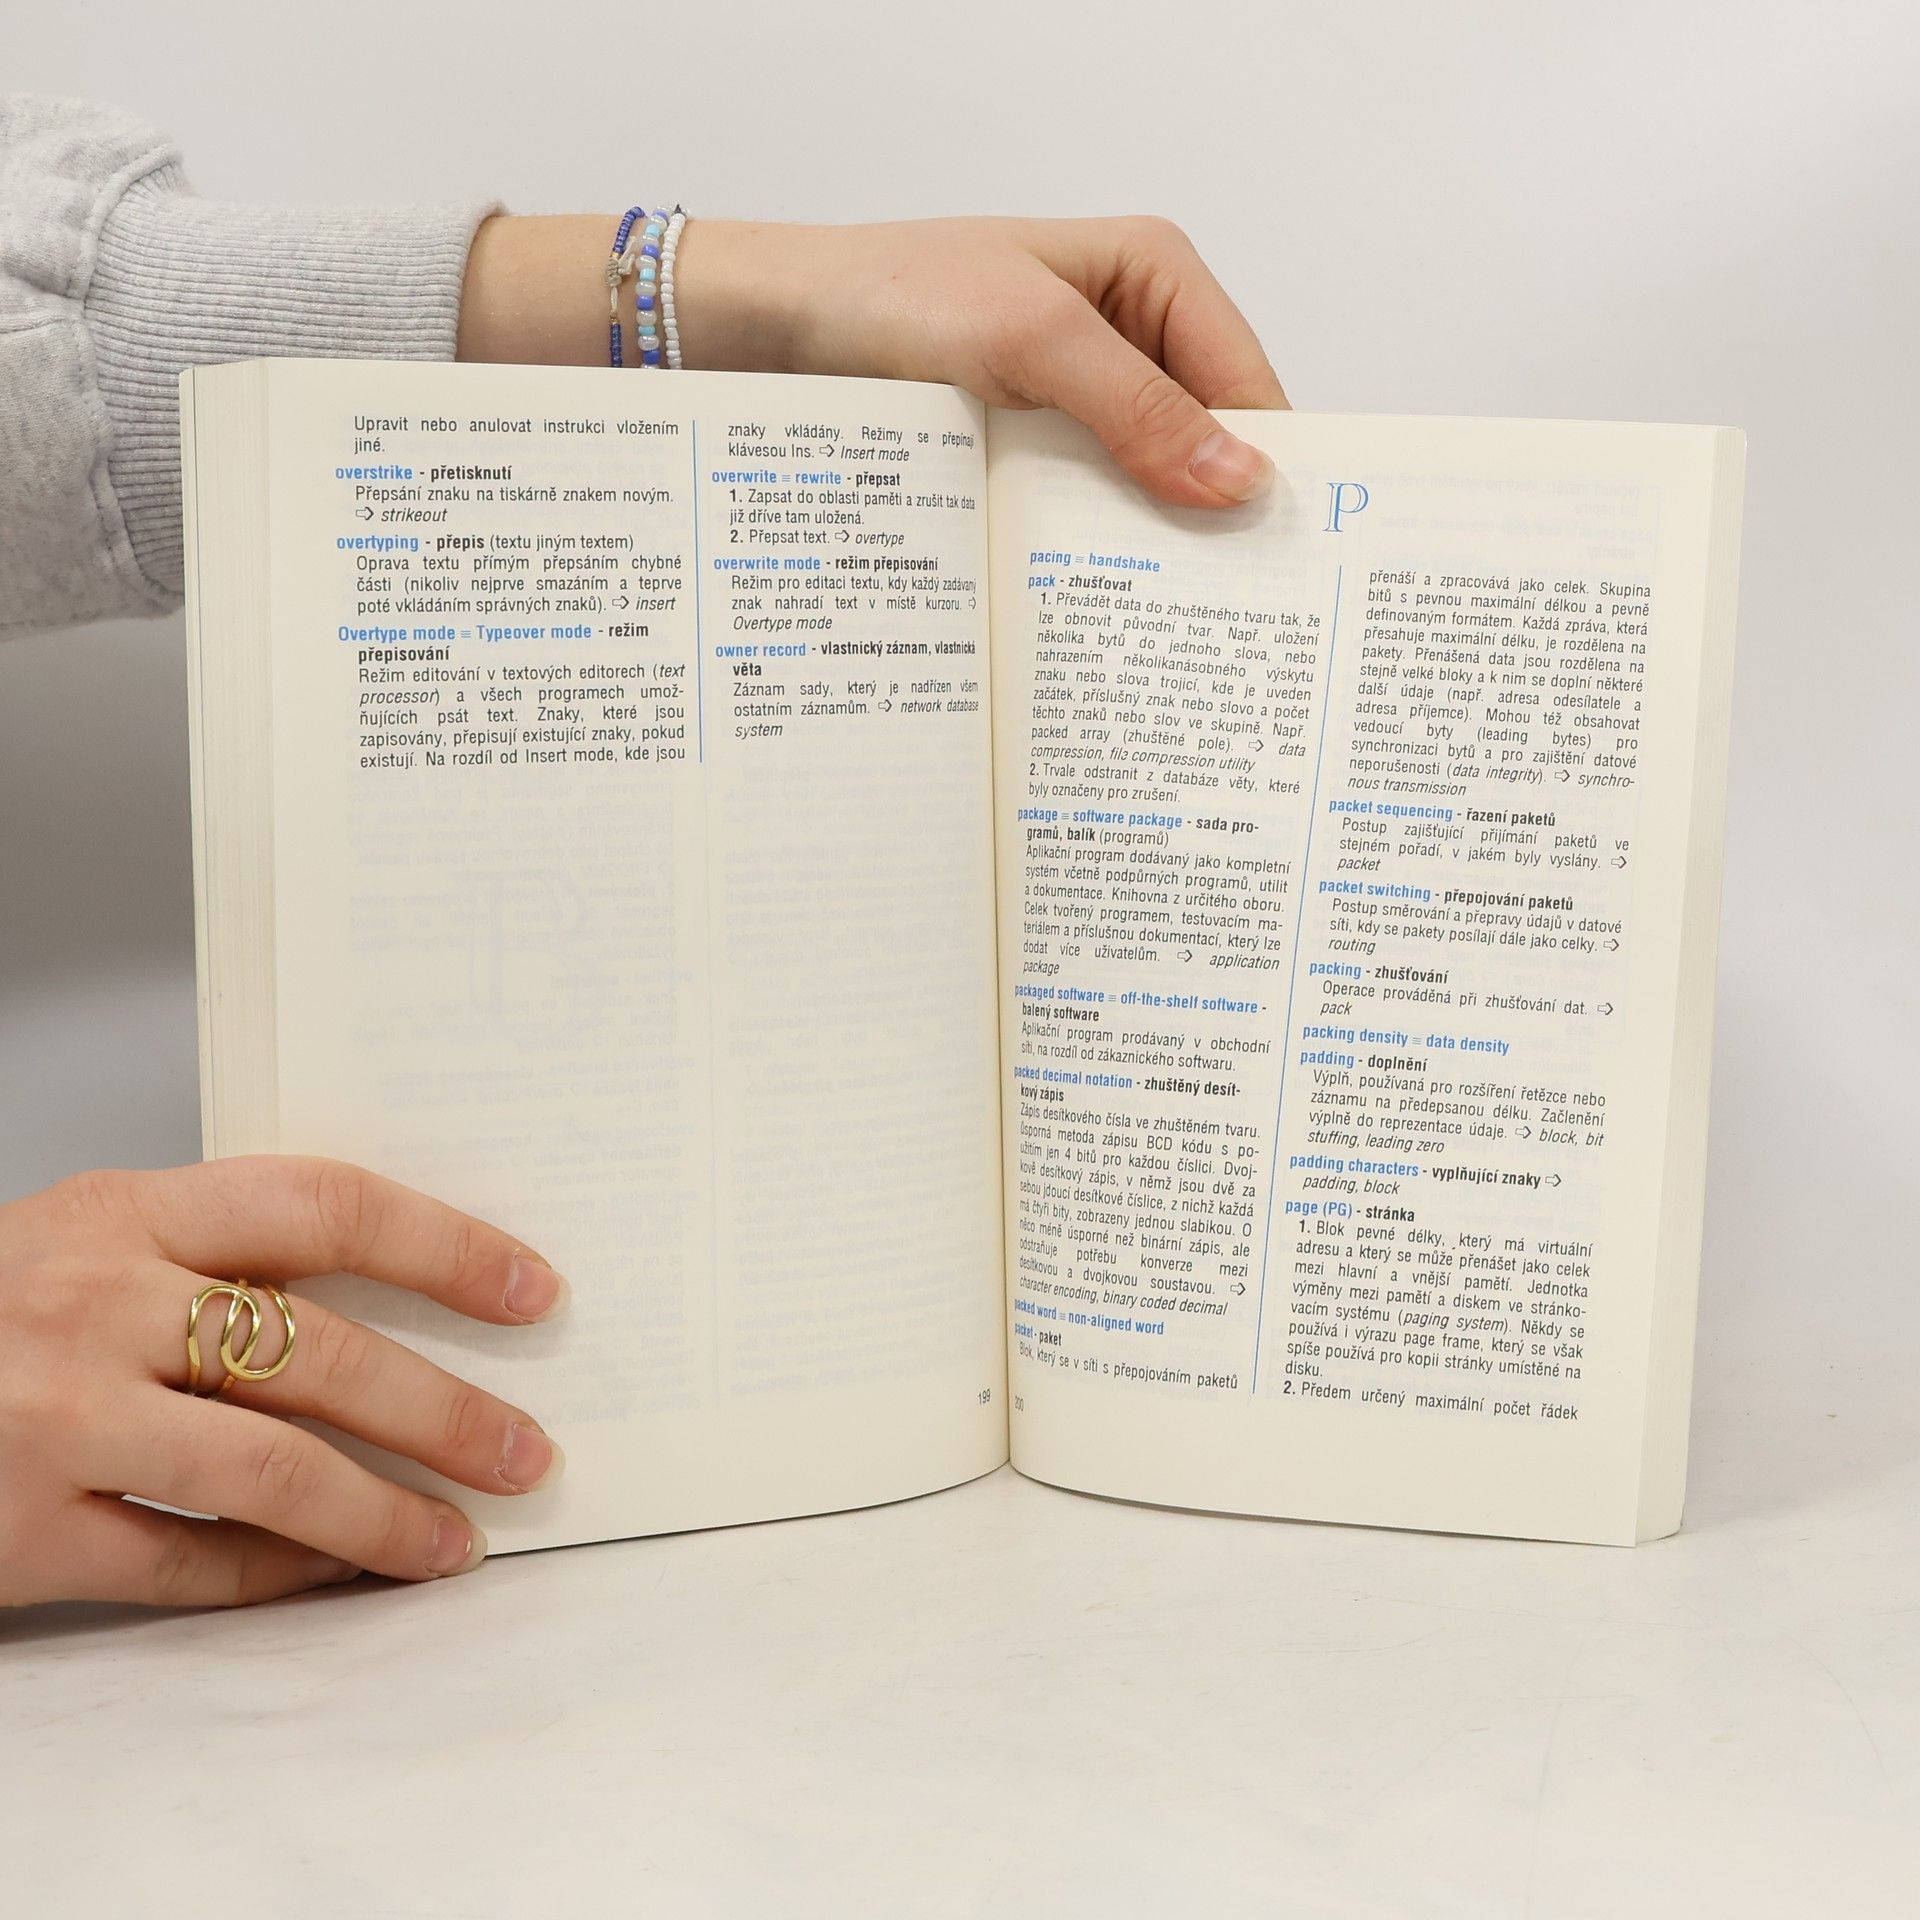 Upravit nebo anulovat instrukci vložením
jiné.
overstrike - přetisknutí
Přepsání znaku na tiskárně znakem novým.
⇨ strikeout
overtyping - přepis (textu jiným textem)
Oprava textu přímým přepsáním chybné
části (nikoliv nejprve smazáním a teprve
poté vkládáním správných znaků). ⇨ insert
Overtype mode ≡ Typeover mode - režim
přepisování
Režim editování v textových editorech (text
processor) a všech programech umož-
ňujících psát text. Znaky, které jsou
zapisovány, přepisují existující znaky, pokud
existují. Na rozdíl od Insert mode, kde jsou
znaky vkládány. Režimy se přepínají
klávesou Ins. ⇨ Insert mode
overwrite ≡ rewrite - přepsat
1. Zapsat do oblasti paměti a zrušit tak data
již dříve tam uložená.
2. Přepsat text. ⇨ overtype
overwrite mode - režim přepisování
Režim pro editaci textu, kdy každý zadávaný
znak nahradí text v místě kurzoru. ⇨
Overtype mode
owner record - vlastnický záznam, vlastnická
věta
Záznam sady, který je nadřízen všem
ostatním záznamům. ⇨ network database
system
199
P
pacing ≡ handshake
pack - zhušťovat
1. Převádět data do zhuštěného tvaru tak, že
lze obnovit původní tvar. Např. uložení
několika bytů do jednoho slova, nebo
nahrazením několikanásobného výskytu
znaku nebo slova trojicí, kde je uveden
začátek, příslušný znak nebo slovo a počet
těchto znaků nebo slov ve skupině. Např.
packed array (zhuštěné pole). ⇨ data
compression, file compression utility
2. Trvale odstranit z databáze věty, které
byly označeny pro zrušení.
package ≡ software package - sada pro-
gramů, balík (programů)
Aplikační program dodávaný jako kompletní
systém včetně podpůrných programů, utilit
a dokumentace. Knihovna z určitého oboru.
Celek tvořený programem, testovacím ma-
teriálem a příslušnou dokumentací, který lze
dodat více uživatelům. ⇨ application
package
packaged software ≡ off-the-shelf software -
balený software
Aplikační program prodávaný v obchodní
síti, na rozdíl od zákaznického softwaru.
packed decimal notation - zhuštěný desít-
kový zápis
Zápis desítkového čísla ve zhuštěném tvaru.
Úsporná metoda zápisu BCD kódu s po-
užitím jen 4 bitů pro každou číslici. Dvoj-
kově desítkový zápis, v němž jsou dvě za
sebou jdoucí desítkové číslice, z nichž každá
má čtyři bity, zobrazeny jednou slabikou. O
něco méně úsporné než binární zápis, ale
odstraňuje potřebu konverze mezi
desítkovou a dvojkovou soustavou. ⇨
character encoding, binary coded decimal
packed word ≡ non-aligned word
packet - paket
Blok, který se v síti s přepojováním paketů
přenáší a zpracovává jako celek. Skupina
bitů s pevnou maximální délkou a pevně
definovaným formátem. Každá zpráva, která
přesahuje maximální délku, je rozdělena na
pakety. Přenášená data jsou rozdělena na
stejně velké bloky a k nim se doplní některé
další údaje (např. adresa odesílatele a
adresa příjemce). Mohou též obsahovat
vedoucí byty (leading bytes) pro
synchronizaci bytů a pro zajištění datové
neporušenosti (data integrity). ⇨ synchro-
nous transmission
packet sequencing - řazení paketů
Postup zajišťující přijímání paketů ve
stejném pořadí, v jakém byly vyslány. ⇨
packet
packet switching - přepojování paketů
Postup směrování a přepravy údajů v datové
síti, kdy se pakety posílají dále jako celky. ⇨
routing
packing - zhušťování
Operace prováděná při zhušťování dat. ⇨
pack
packing density ≡ data density
padding - doplnění
Výplň, používaná pro rozšíření řetězce nebo
záznamu na předepsanou délku. Začlenění
výplně do reprezentace údaje. ⇨ block, bit
stuffing, leading zero
padding characters - vyplňující znaky ⇨
padding, block
page (PG) - stránka
1. Blok pevné délky, který má virtuální
adresu a který se může přenášet jako celek
mezi hlavní a vnější pamětí. Jednotka
výměny mezi pamětí a diskem ve stránko-
vacím systému (paging system). Někdy se
používá i výrazu page frame, který se však
spíše používá pro kopii stránky umístěné na
disku.
2. Předem určený maximální počet řádek
200